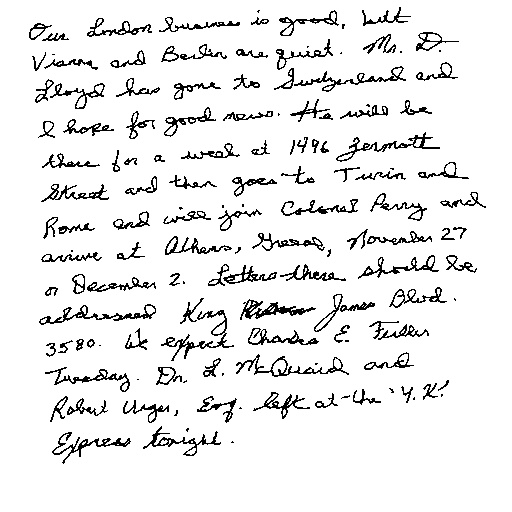 Our London business is good, but
Vianna and Berlin are quiet. Mr. D.
Lloyd has gone to Switzerland and
I hope for good news. He will be
there for a week at 1496 Zermott
Street and then goes to Turin and
Rome and will join Colonel Perry and
arrive at Athens, Greece, November 27
or December 2. Letters there should be
addressed King James Blvd.
3580. We expect Charles E. Fuller
Tuesday. Dr. L. McQuaid and
Robert Unger, Esq. left at the 'Y. X.'
Express tonight.